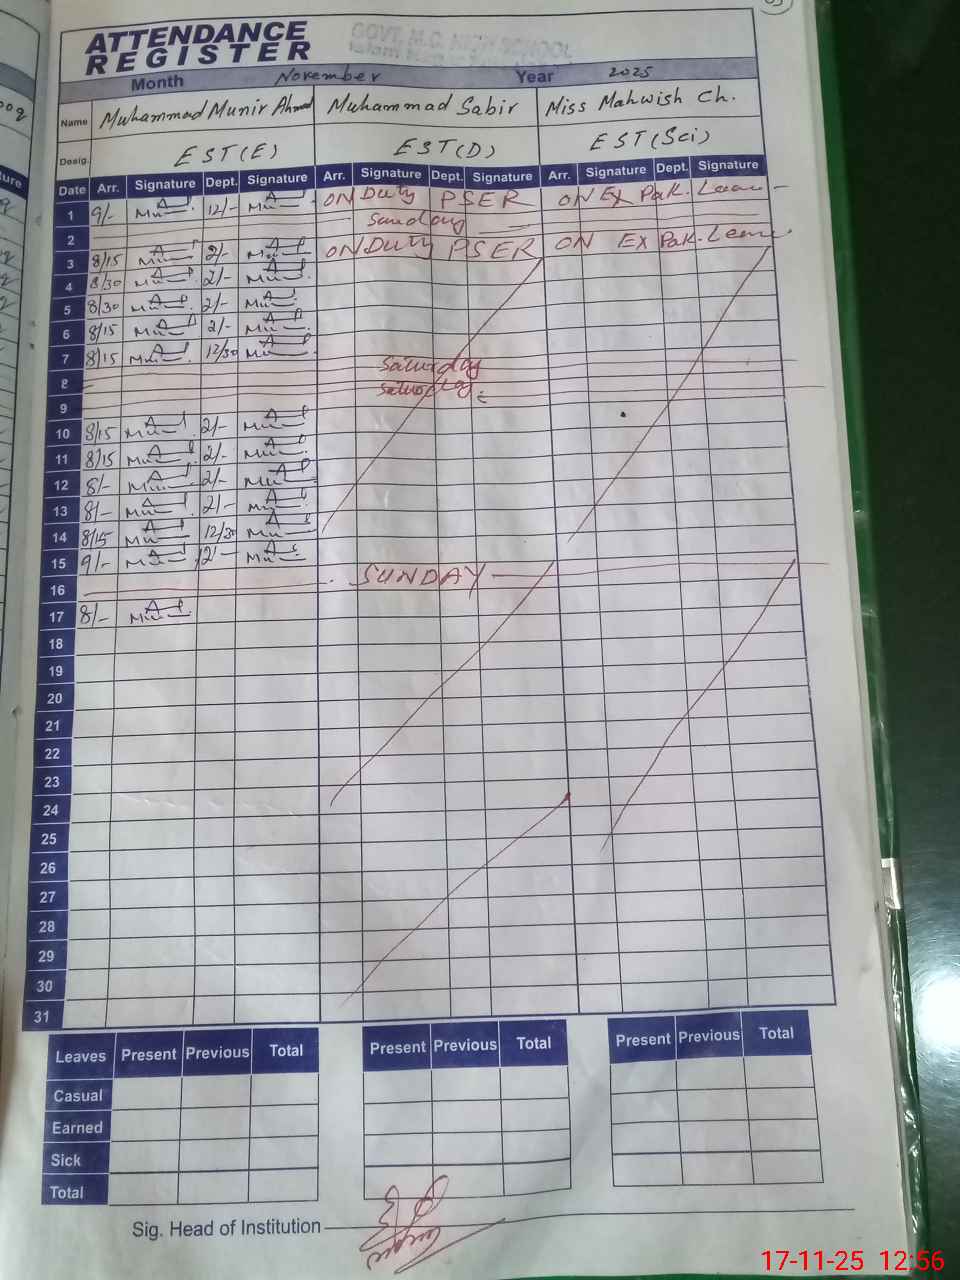 ATTENDANCE
REGISTER
Month November Year 2025
Name Muhammad Munir Ahmad Muhammad Sabir Miss Mahwish Ch.
Desig. EST(E) EST(D) EST(Sci)
Date Arr. Signature Dept. Signature Arr. Signature Dept. Signature Arr. Signature Dept. Signature
1 9/- 12/- ON Duty PSER ON EX Pak. Leave
Sunday
2
3 8/15 2/- ON Duty PSER ON EX Pak. Leave
4 8/30 2/-
5 8/30 2/-
6 8/15 2/-
7 8/15 12/30
8 Saturday
9 Saturday
10 8/15 2/-
11 8/15 2/-
12 8/- 2/-
13 8/- 2/-
14 8/15 12/30
15 9/- 12/-
16 SUNDAY
17 8/-
18
19
20
21
22
23
24
25
26
27
28
29
30
31
Leaves Present Previous Total Present Previous Total Present Previous Total
Casual
Earned
Sick
Total
Sig. Head of Institution
17-11-25 12:56